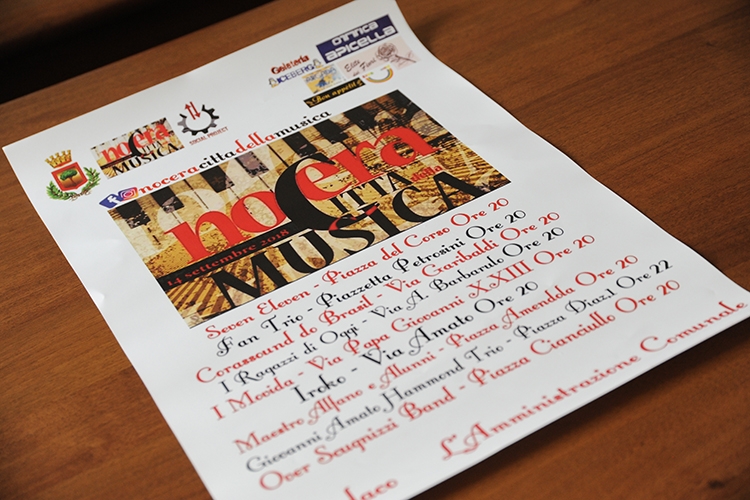 OTTICA
APICELLA
Gelateria
ICEBERG
Bon appétit
nocera
CITTÀ della
MUSICA
SOCIAL PROJECT
noceracittadellamusica
nocera
CITTÀ della
MUSICA
14 settembre 2018
Seven Eleven - Piazza del Corso Ore 20
Fan Trio - Piazzetta Petrosini Ore 20
Corassound do Brasil - Via Garibaldi Ore 20
I Ragazzi di Oggi - Via A. Barbarulo Ore 20
I Movida - Via Papa Giovanni XXIII Ore 20
Iroko - Via Amato Ore 20
Maestro Alfano e Alunni - Piazza Amendda Ore 20
Giovanni Amato Hammond Trio - Piazza Diaz,1 Ore 22
Over Scugnizzi Band - Piazza Cianciullo Ore 20
L'Amministrazione Comunale